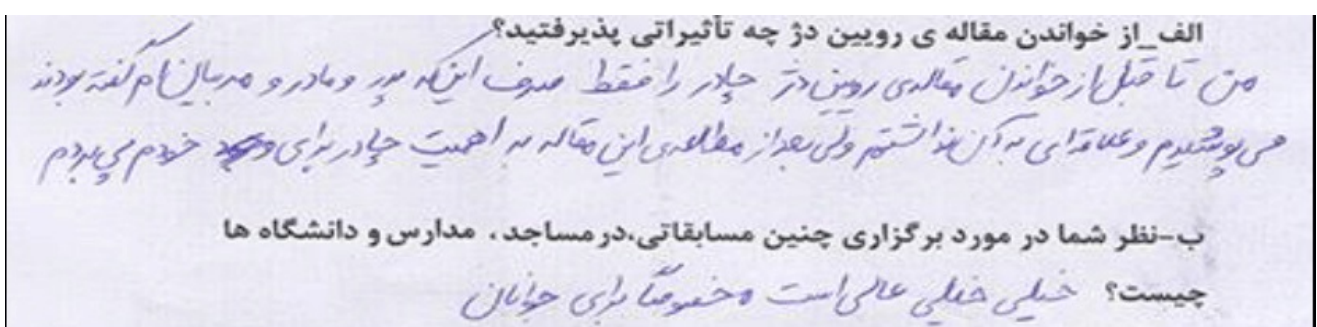 الف_از خواندن مقاله ی رویین دژ چه تأثیراتی پذیرفتید؟
من تا قبل از خواندن مقاله‌ی رویین دژ چادر را فقط صرف اینکه پدر و مادر و مربیان ام گفته بودند
می پوشیدم و علاقه‌ای به آن نداشتم ولی بعد از مطالعه‌ی این مقاله به اهمیت چادر برای خودم پی بردم
ب-نظر شما در مورد برگزاری چنین مسابقاتی،در مساجد ، مدارس و دانشگاه ها
چیست؟ خیلی خیلی عالی است مخصوصاً برای جوانان